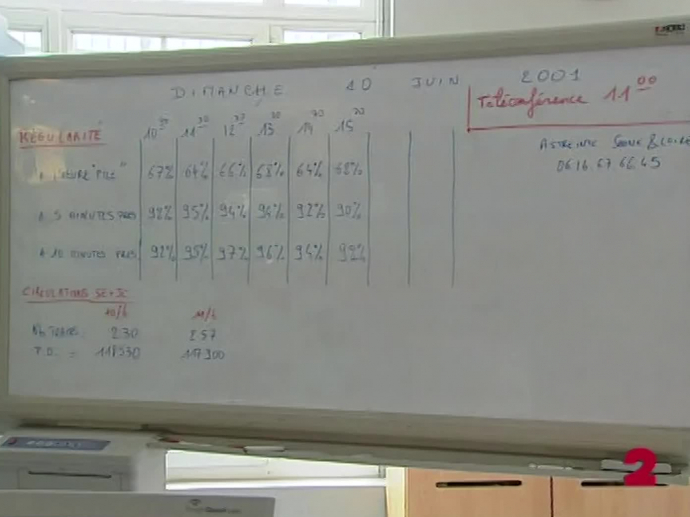 DIMANCHE 10 JUIN 2001
Téléconférence 11 00
RÉGULARITÉ 10 30 11 30 12 30 13 30 14 30 15 30
ASTREINTE SAONE & LOIRE
06.16.67.66.45
A L'HEURE "PILE" 67% 64% 66% 68% 64% 62%
A 5 MINUTES PRES 92% 95% 94% 94% 92% 90%
A 10 MINUTES PRES 92% 95% 97% 96% 94% 92%
CIRCULATIONS
10/6 11/6
Nb TRAINS: 230 257
= 118530 117300
2